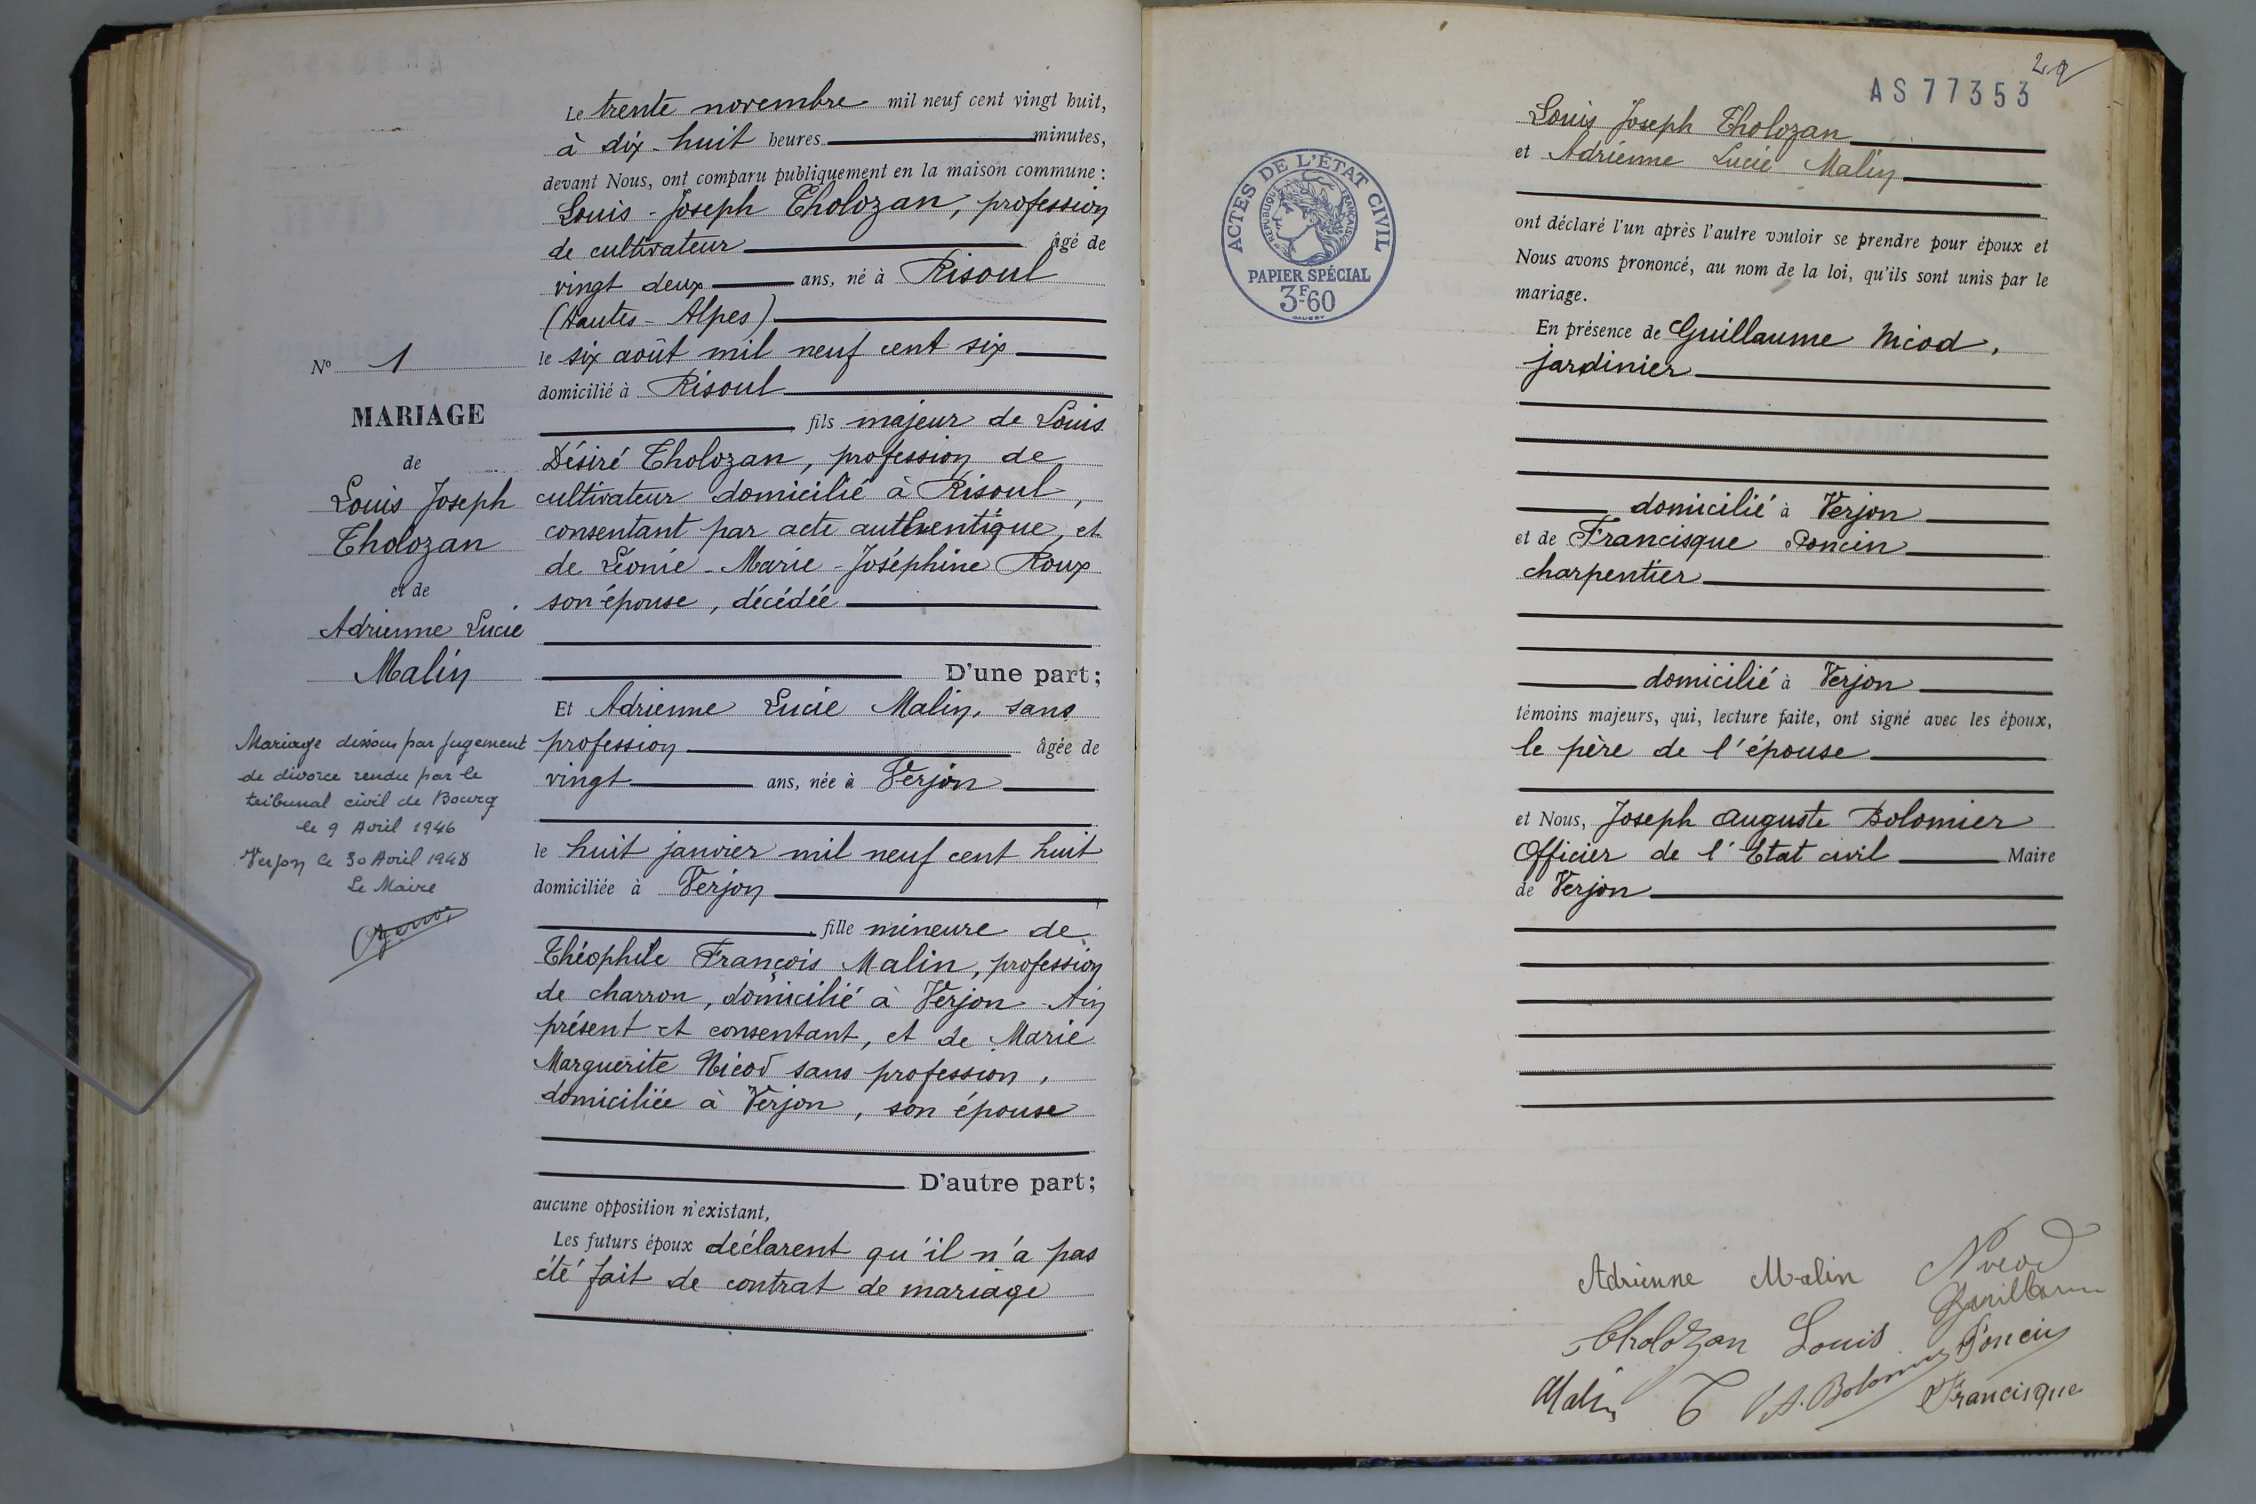 Le trente novembre mil neuf cent vingt huit,
à dix-huit heures minutes,
devant Nous, ont comparu publiquement en la maison commune :
Louis-Joseph Tholozan, profession
de cultivateur âgé de
vingt deux ans, né à Risoul
(Hautes-Alpes)
le six août mil neuf cent six
domicilié à Risoul
fils majeur de Louis
Désiré Tholozan, profession de
cultivateur domicilié à Risoul,
consentant par acte authentique, et
de Léonie-Marie-Joséphine Roux
son épouse, décédée
D'une part;
Et Adrienne Lucie Malin, sans
profession âgée de
vingt ans, née à Verjon
le huit janvier mil neuf cent huit
domiciliée à Verjon
fille mineure de
Théophile François Malin, profession
de charron, domicilié à Verjon Ain
présent et consentant, et de Marie
Marguerite Nicod sans profession,
domiciliée à Verjon, son épouse
D'autre part;
aucune opposition n'existant,
Les futurs époux déclarent qu'il n'a pas
été fait de contrat de mariage
No 1
MARIAGE
de
Louis Joseph
Tholozan
et de
Adrienne Lucie
Malin
Mariage dissous par jugement
de divorce rendu par le
tribunal civil de Bourg
le 9 Avril 1946
Verjon le 30 Avril 1948
Le Maire
29
AS 77353
ACTES DE L'ÉTAT CIVIL
RÉPUBLIQUE FRANÇAISE
PAPIER SPÉCIAL
3F60
Louis Joseph Tholozan
et Adrienne Lucie Malin
ont déclaré l'un après l'autre vouloir se prendre pour époux et
Nous avons prononcé, au nom de la loi, qu'ils sont unis par le
mariage.
En présence de Guillaume Nicod,
jardinier
domicilié à Verjon
et de Francisque Poncin
charpentier
domicilié à Verjon
témoins majeurs, qui, lecture faite, ont signé avec les époux,
le père de l'épouse
et Nous, Joseph Auguste Bolomier
Officier de l'Etat civil Maire
de Verjon
Adrienne Malin Nicod
Guillaume
Tholozan Louis Poncin
Malin T A. Bolomier Francisque